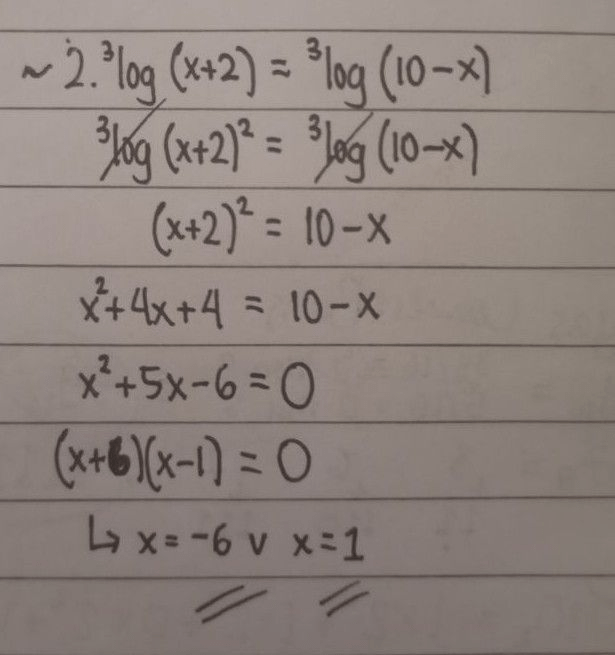 ~ 2. ³log (x+2) = ³log (10-x)
³log (x+2)² = ³log (10-x)
(x+2)² = 10-x
x²+4x+4 = 10-x
x²+5x-6=0
(x+6)(x-1) = 0
↳ x = -6 v x=1